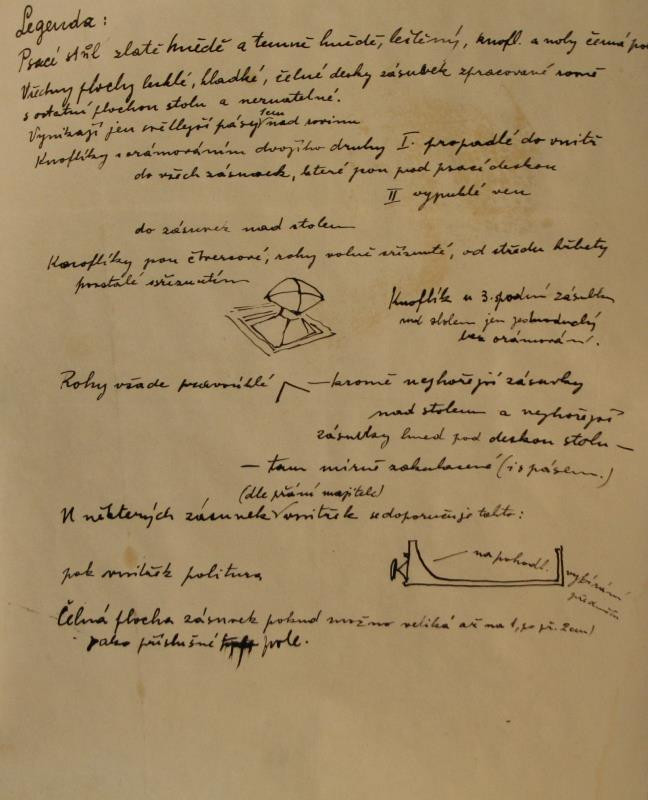 Legenda:
Psací stůl zlatě hnědě a temně hnědě, leštěný, knofl. a nohy černá po
Všechny plochy lesklé, hladké, čelné desky zásuvek zpracované rovně
s ostatní plochou stolu a neznatelné.
Vynikají jen světlejší pásy 1cm nad rovinu
Knoflíky s orámováním dvojího druhu I. propadlé do vnitř
do všech zásuvek, které jsou pod psací deskou
II vypuklé ven
do zásuvek nad stolem
Knoflíky jsou čtvercové, rohy volně seříznuté, od středu hřbety
povstalé seříznutím
Knoflík u 3. spodní zásuvky
nad stolem jen jednoduchý
bez orámování.
Rohy všade pravoúhlé — kromě nejhořejší zásuvky
nad stolem a nejhořejší
zásuvky hned pod deskou stolu —
— tam mírně zakulacené (i s pásem.)
(dle přání majitele)
U některých zásuvek vnitřek se doporučuje takto:
na pohodl.
vybírání
předmětů
pak vnitřek politura
Čelná plocha zásuvek pokud možno veliká až na 1, po př. 2cm)
jako příslušné pole.